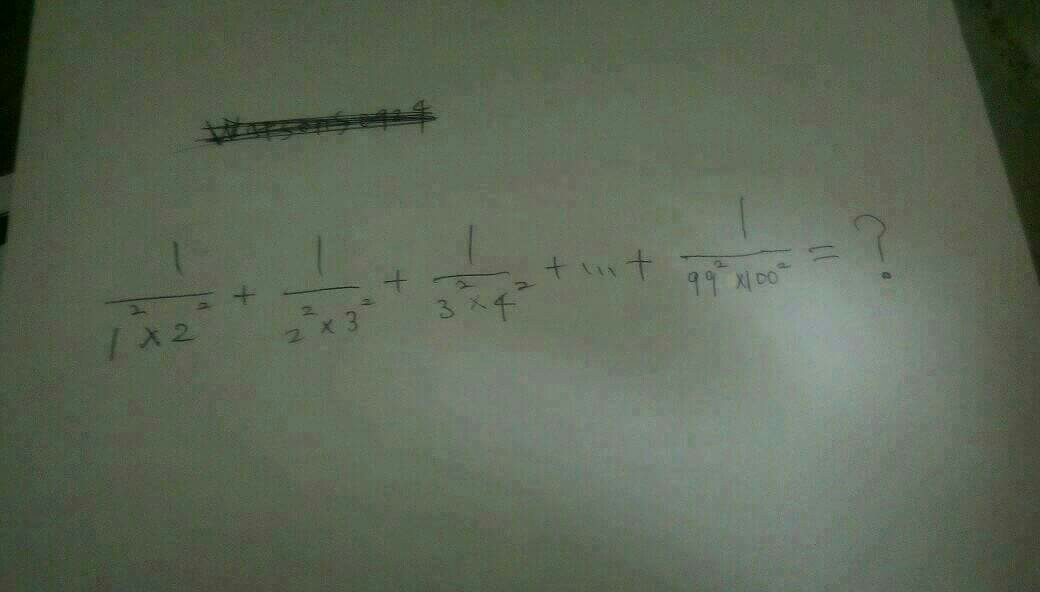 1/(1² × 2²) + 1/(2² × 3²) + 1/(3² × 4²) + ... + 1/(99² × 100²) = ?